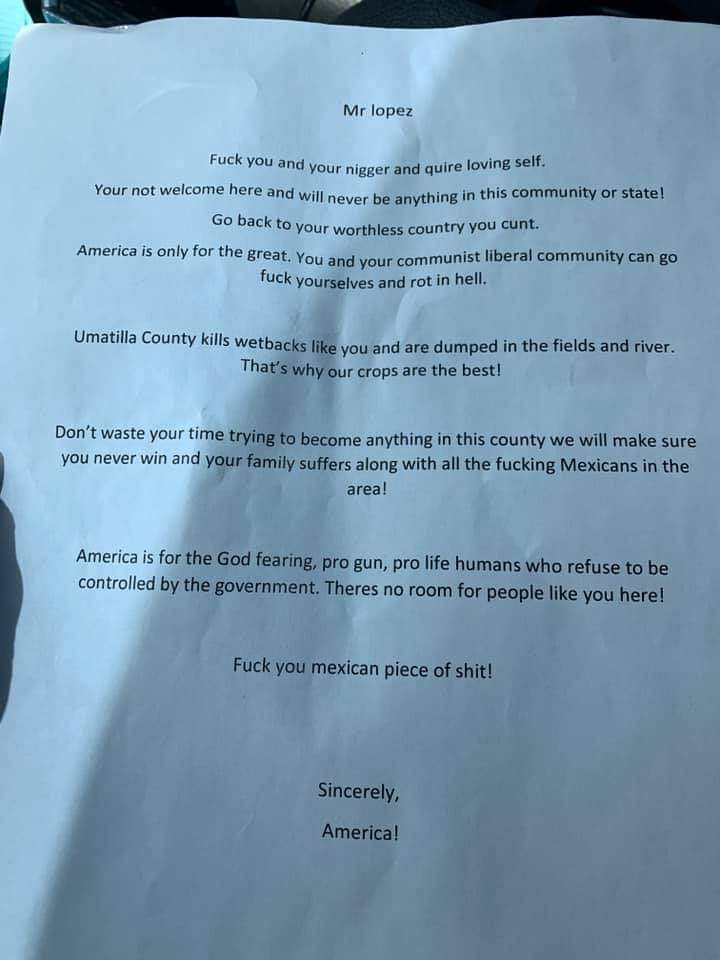 Mr lopez
Fuck you and your nigger and quire loving self.
Your not welcome here and will never be anything in this community or state!
Go back to your worthless country you cunt.
America is only for the great. You and your communist liberal community can go
fuck yourselves and rot in hell.
Umatilla County kills wetbacks like you and are dumped in the fields and river.
That's why our crops are the best!
Don't waste your time trying to become anything in this county we will make sure
you never win and your family suffers along with all the fucking Mexicans in the
area!
America is for the God fearing, pro gun, pro life humans who refuse to be
controlled by the government. Theres no room for people like you here!
Fuck you mexican piece of shit!
Sincerely,
America!